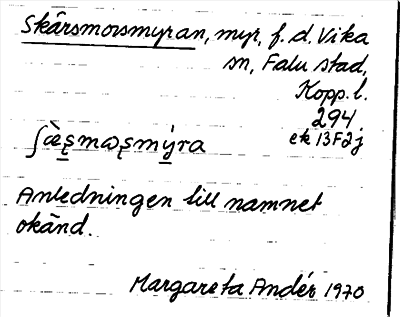 Skärsmorsmyran, myr, f. d. Vika
sn, Falu stad,
Kopp. l.
294
ek 13F2j
ʃæ̀ṣmɷṣmýra
Anledningen till namnet
okänd.
Margareta Andér 1970